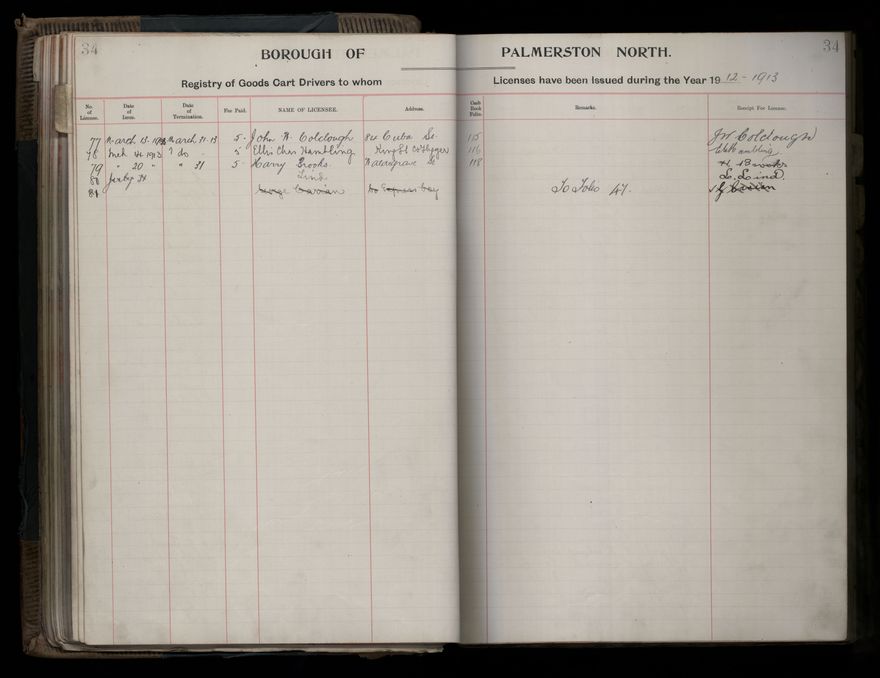 34
34
BOROUGH OF PALMERSTON NORTH.
Registry of Goods Cart Drivers to whom Licenses have been Issued during the Year 1912-1913
No. of License.
Date of Issue.
Date of Termination.
Fee Paid.
NAME OF LICENSEE.
Address.
Cash Book Folio.
Remarks.
Receipt For License.
77 March 13-1913 March 31-13 5- John W. Coldough Cuba St 115
78 Mch 14 1913 do 5 Ellis Chas Hambling King St 116 Hambling
79 " 20 " " 31 5- Harry Brooks St 118 H. Brooks
80 Lind L. Lind
81 George To Folio 47.